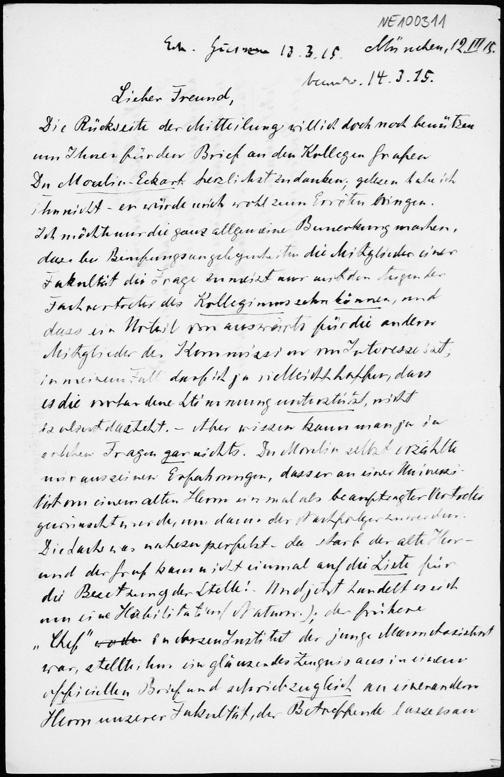 NE100311
Erh. 13.3.15. München, 12 III 15.
14.3.15.
Lieber Freund,
Die Rückseite der Mitteilung will ich doch noch benützen
um Ihnen für den Brief an den Kollegen Grafen
Du Moulin-Eckart herzlichst zu danken; gelesen habe ich
ihn nicht – er würde mich wohl zum Erröten bringen.
Ich möchte nur die ganz allgemeine Bemerkung machen,
dass bei Berufungsangelegenheiten die Mitglieder einer
Fakultät die Frage zumeist nur mit den Augen der
Fachvertreter des Kollegiums sehn können, und
dass ein Urteil von auswärts für die andern
Mitglieder der Kommission von Interesse ist,
in meinem Fall darf ich ja vielleicht hoffen, dass
es die vorhandene Stimmung unterstützt, nicht
isoliert dasteht. – Aber wissen kann man ja in
solchen Fragen gar nichts. Du Moulin selbst erzählte
mir aus seinen Erfahrungen, dass er an einer Universi-
tät von einem alten Herrn einmal als beauftragter Vertreter
gewünscht wurde, um dann der Nachfolger zu werden.
Die Sache war nahezu perfekt – da starb der alte Herr –
und der Graf kam nicht einmal auf die Liste für
die Besetzung der Stelle! – Und jetzt handelt es sich
um eine Habilitation (Naturw.); der frühere
"Chef" an dessen Institut der junge Mann Assistent
war, stellte ihm ein glänzendes Zeugnis aus in einem
officiellen Brief und schrieb zugleich an einen andern
Herrn unserer Fakultät, der Betreffende lasse man